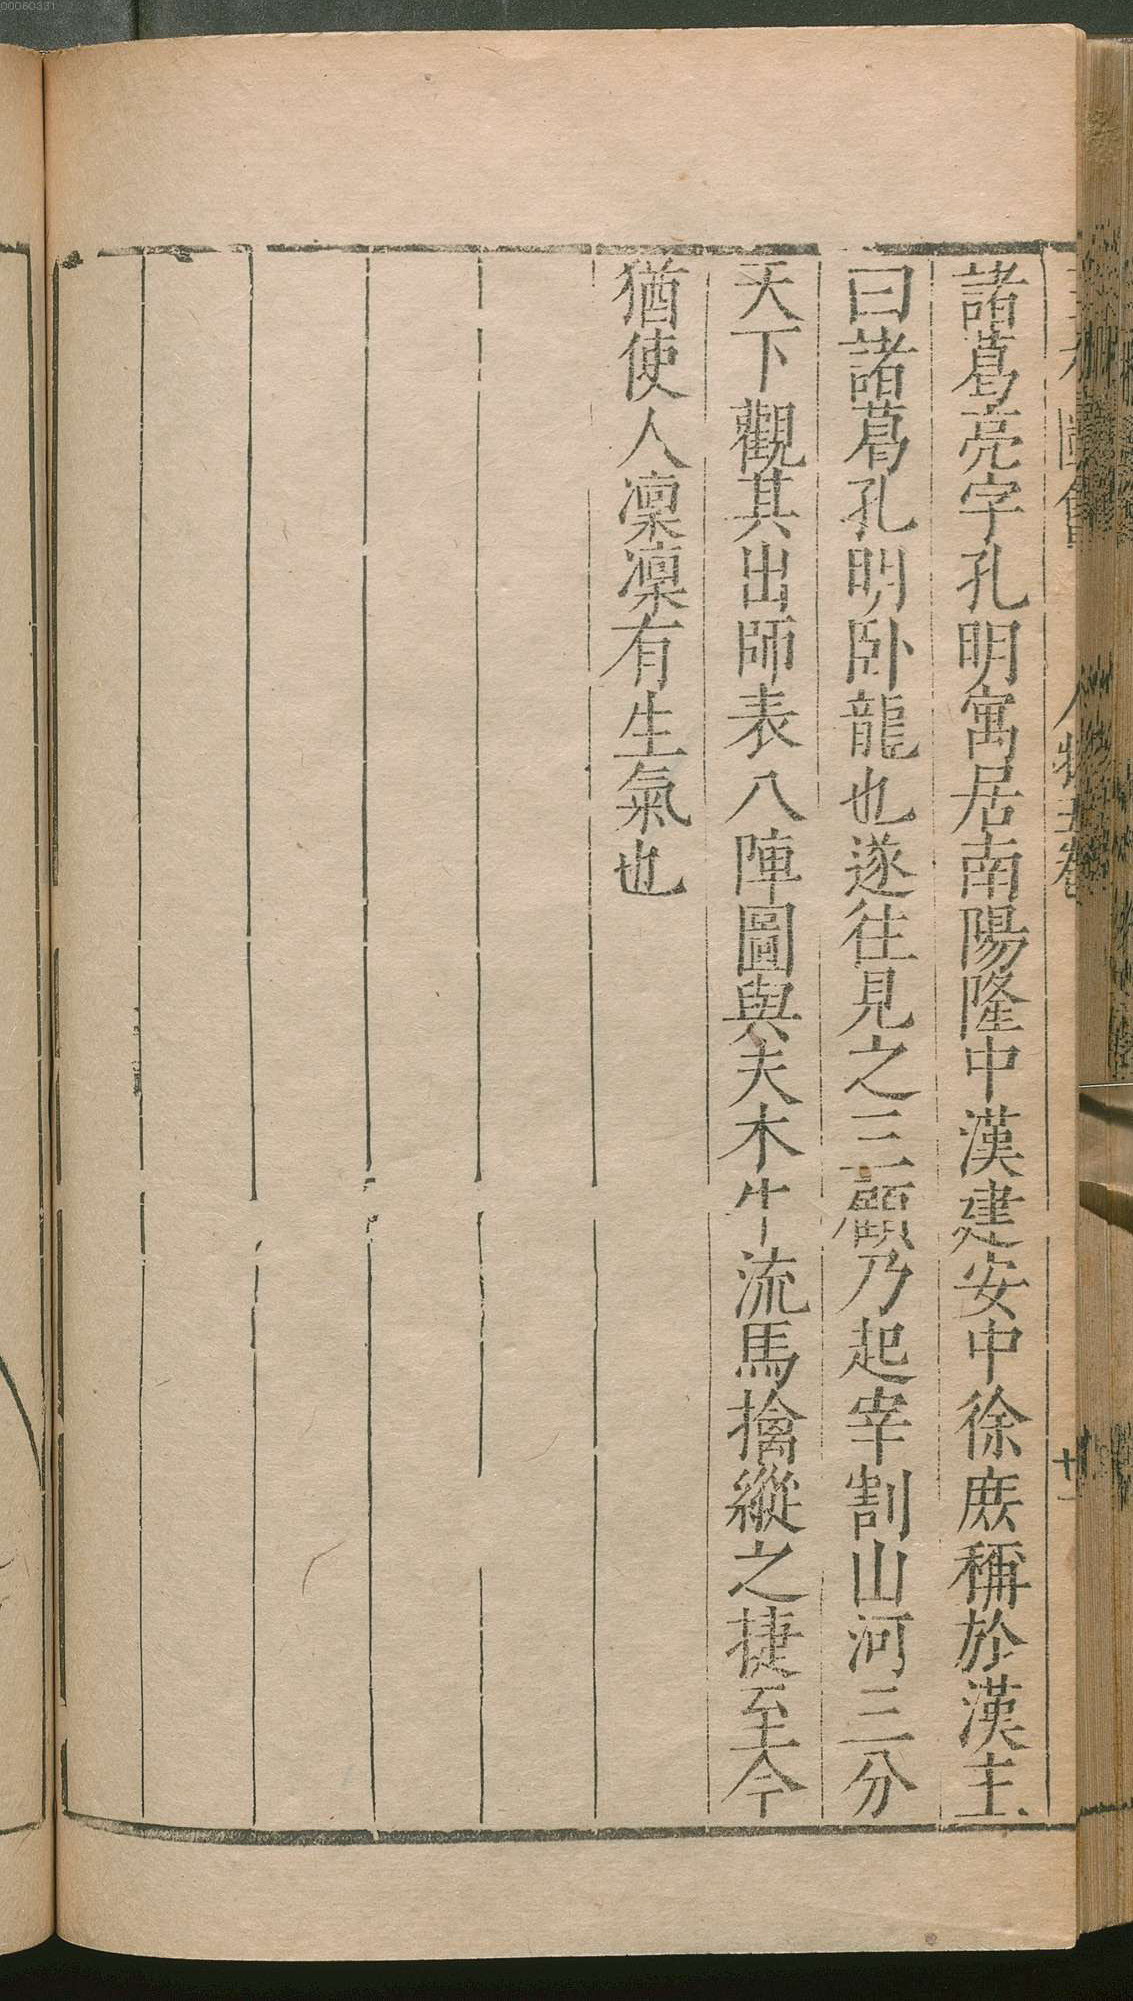 諸葛亮字孔明寓居南陽隆中漢建安中徐庶稱於漢主
曰諸葛孔明卧龍也遂往見之三顧乃起宰割山河三分
天下觀其出師表八陣圖與夫木牛流馬擒縱之捷至今
猶使人凜凜有生氣也
00060331